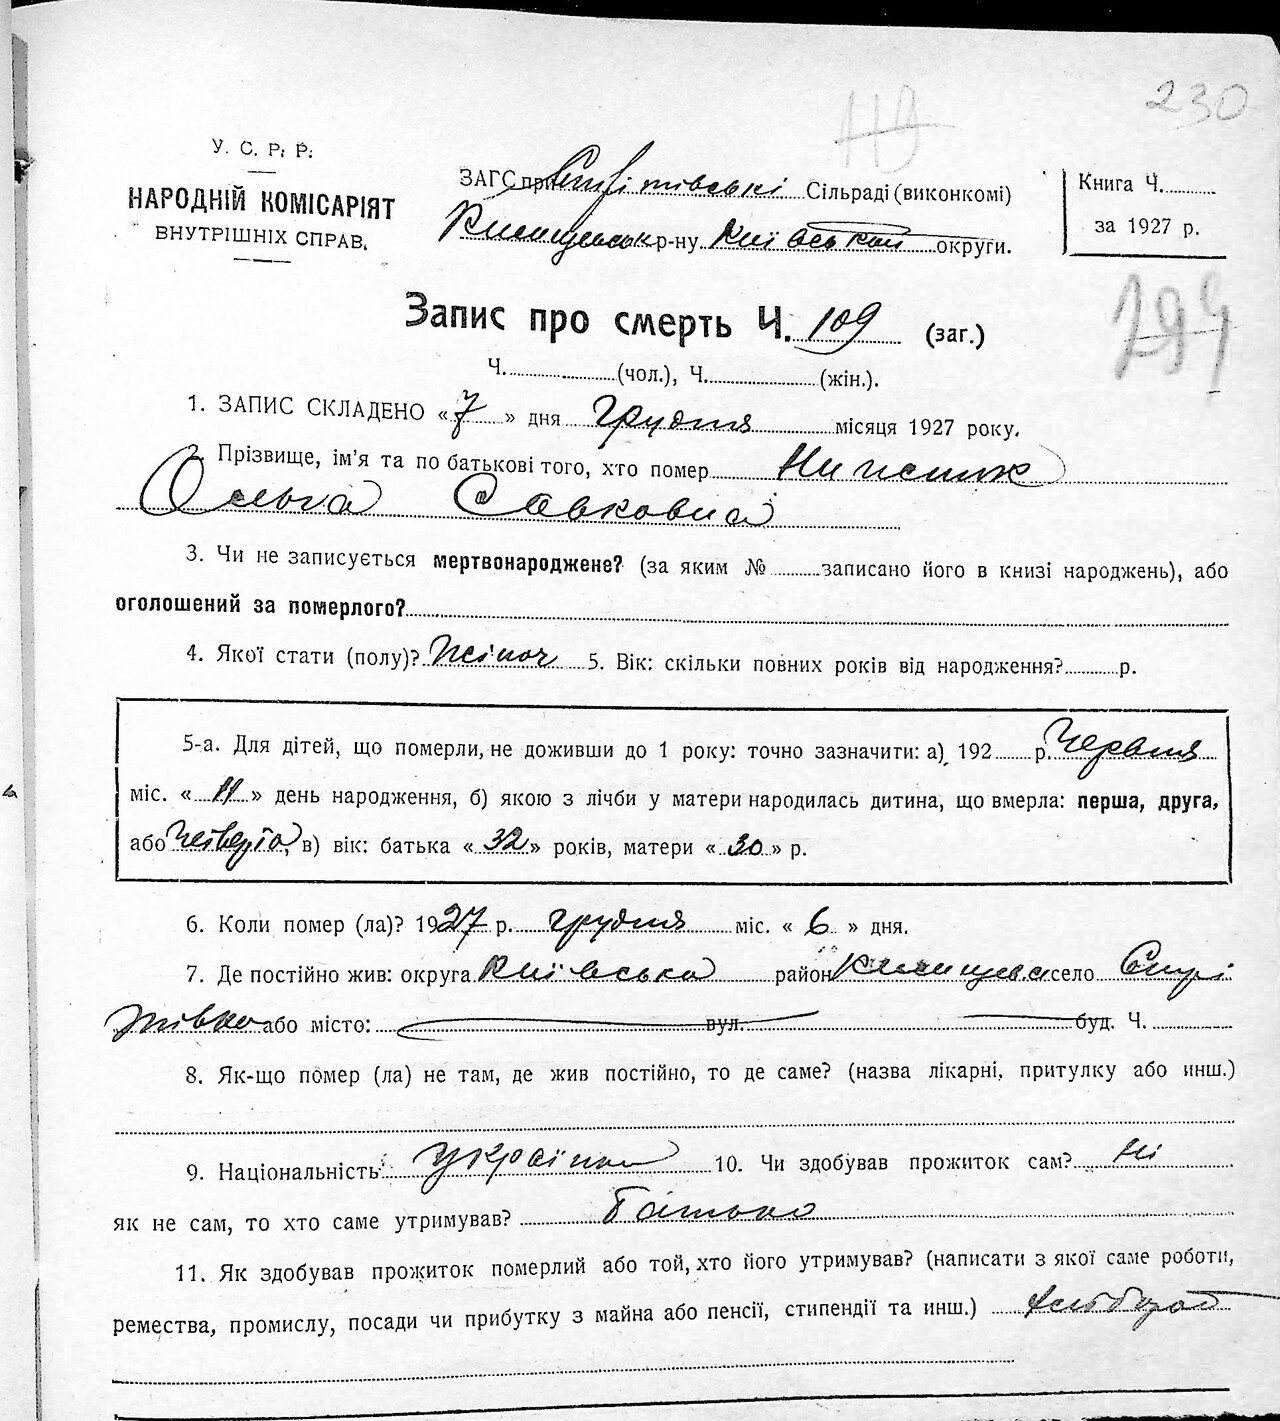 230
У. С. Р. Р.
НАРОДНІЙ КОМІСАРІЯТ
ВНУТРІШНІХ СПРАВ.
ЗАГС при Сільраді (виконкомі)
р-ну Київської округи.
Книга Ч.
за 1927 р.
294
Запис про смерть Ч. 109 (заг.)
Ч. (чол.), Ч. (жін.).
1. ЗАПИС СКЛАДЕНО « 7 » дня Грудня місяця 1927 року.
2. Прізвище, ім'я та по батькові того, хто помер
Ольга Савковна
3. Чи не записується мертвонароджене? (за яким № записано його в книзі народжень), або
оголошений за померлого?
4. Якої стати (полу)? Жіноч 5. Вік: скільки повних років від народження? р.
5-а. Для дітей, що померли, не доживши до 1 року: точно зазначити: а) 192 р. Червня
міс. « 11 » день народження, б) якою з лічби у матери народилась дитина, що вмерла: перша, друга,
або Четверта, в) вік: батька « 32 » років, матери « 30 » р.
6. Коли помер (ла)? 1927 р. грудня міс. « 6 » дня.
7. Де постійно жив: округа Київська район село
або місто: вул. буд. Ч.
8. Як-що помер (ла) не там, де жив постійно, то де саме? (назва лікарні, притулку або инш.)
9. Національність: Українка 10. Чи здобував прожиток сам? Ні
як не сам, то хто саме утримував? Батько
11. Як здобував прожиток померлий або той, хто його утримував? (написати з якої саме роботи,
ремества, промислу, посади чи прибутку з майна або пенсії, стипендії та инш.) хлібороб